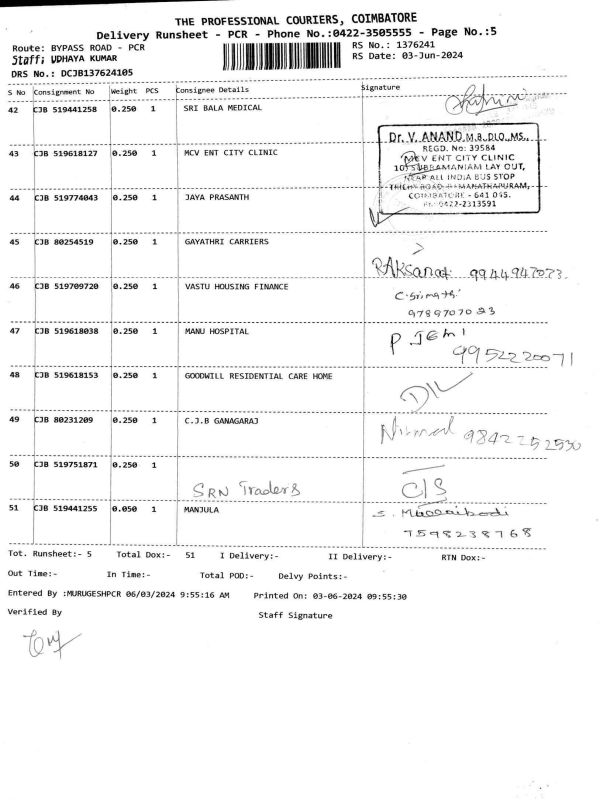 THE PROFESSIONAL COURIERS, COIMBATORE
Delivery Runsheet - PCR - Phone No.:0422-3505555 - Page No.:5
Route: BYPASS ROAD - PCR
RS No.: 1376241
Staff: UDHAYA KUMAR
RS Date: 03-Jun-2024
DRS No.: DCJB137624105
S No Consignment No Weight PCS Consignee Details Signature
42 CJB 519441258 0.250 1 SRI BALA MEDICAL
43 CJB 519618127 0.250 1 MCV ENT CITY CLINIC
Dr. V. ANAND M.B.,DLO.,MS.,
REGD. No: 39584
MCV ENT CITY CLINIC
10, SUBRAMANIAM LAY OUT,
NEAR ALL INDIA BUS STOP
TRICHY ROAD, RAMANATHAPURAM,
COIMBATORE - 641 045.
PH: 0422-2313591
44 CJB 519774043 0.250 1 JAYA PRASANTH
45 CJB 80254519 0.250 1 GAYATHRI CARRIERS
9944947073
46 CJB 519709720 0.250 1 VASTU HOUSING FINANCE
C. Srimathi
9789707023
47 CJB 519618038 0.250 1 MANU HOSPITAL
P. JEMI
9952220071
48 CJB 519618153 0.250 1 GOODWILL RESIDENTIAL CARE HOME
D/L
49 CJB 80231209 0.250 1 C.J.B GANAGARAJ
Nirmal 9842252530
50 CJB 519751871 0.250 1
SRN Traders C/S
51 CJB 519441255 0.050 1 MANJULA
7598238768
Tot. Runsheet:- 5 Total Dox:- 51 I Delivery:- II Delivery:- RTN Dox:-
Out Time:- In Time:- Total POD:- Delvy Points:-
Entered By :MURUGESHPCR 06/03/2024 9:55:16 AM Printed On: 03-06-2024 09:55:30
Verified By Staff Signature